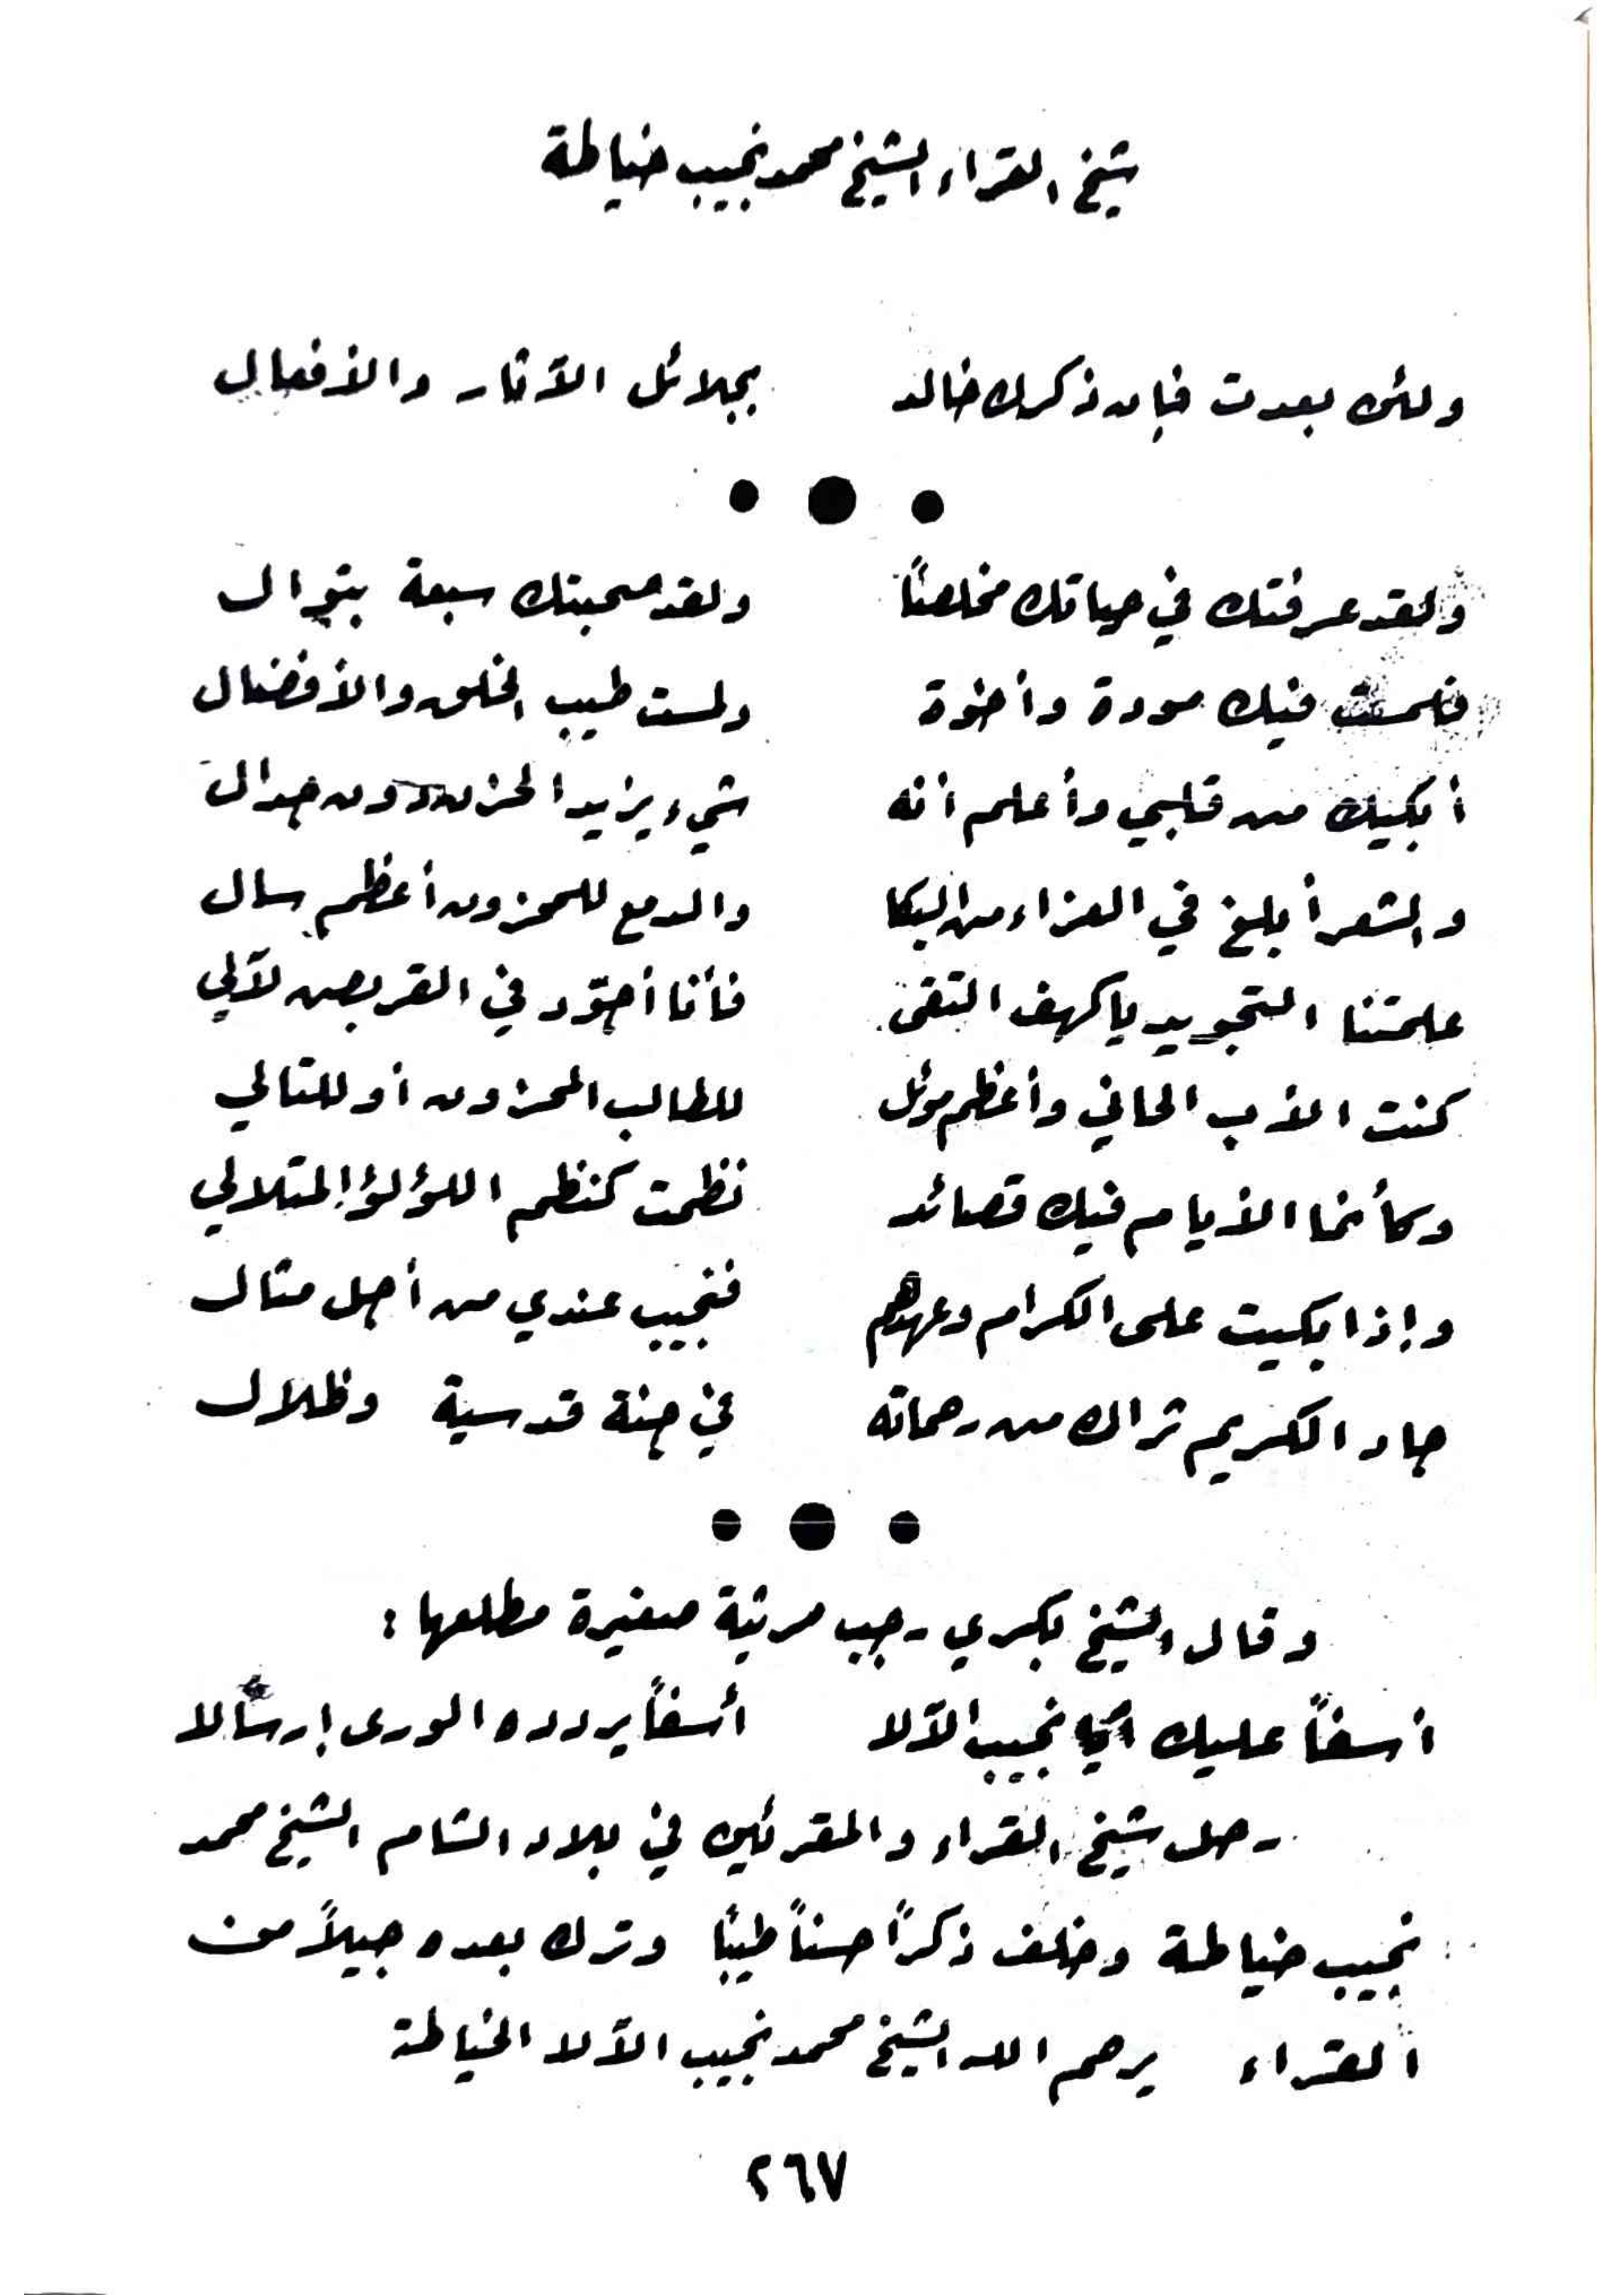 شيخ القراء الشيخ محمد نجيب خياطة
ولئن بعدت فإن ذكرك خالد بجلائل الآثار والأفعال
ولقد عرفتك في حياتك مخلصاً ولقد صحبتك سبعة بتوال
فلمست فيك مودة وأخوة ولمست طيب الخلق والأفضال
أبكيك من قلبي وأعلم أنه شيء يزيد الحزن دون جدال
والشعر أبلغ في العزاء من البكا والدمع للمحزون أعظم سال
علمتنا التجويد يا كهف التقى فأنا أجوّد في القريض لآلي
كنت الأب الحاني وأعظم موئل للطالب المحزون أو للتالي
وكأنما الأيام فيك قصائد نظمت كنظم اللؤلؤ المتلالي
وإذا بكيت على الكرام وعهدهم فنجيب عندي من أجل مثال
جاد الكريم ثراك من رحماته في جنة قدسية وظلال
وقال الشيخ بكري رجب مرثية صغيرة مطلعها :
أسفاً عليك أيا نجيب الآلا أسفاً يردده الورى إرسالا
رحل شيخ القراء والمقرئين في بلاد الشام الشيخ محمد
نجيب خياطة وخلف ذكراً حسناً طيباً وترك بعده جيلاً من
القراء يرحم الله الشيخ محمد نجيب الآلا الخياطة
٢٦٧